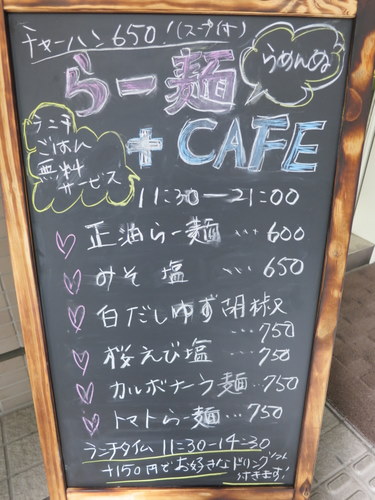 チャーハン650!(スープ付)
らーめんぬ
らー麺
+ CAFE
ランチ
ごはん
無料
サービズ
11:30-21:00
正油らー麺 … 600
みそ 塩 … 650
白だしゆず胡椒
… 750
桜えび塩 … 750
カルボナーラ麺 … 750
トマトらー麺 … 750
ランチタイム 11:30-14:30
+150円でお好きなドリンク
付きます!